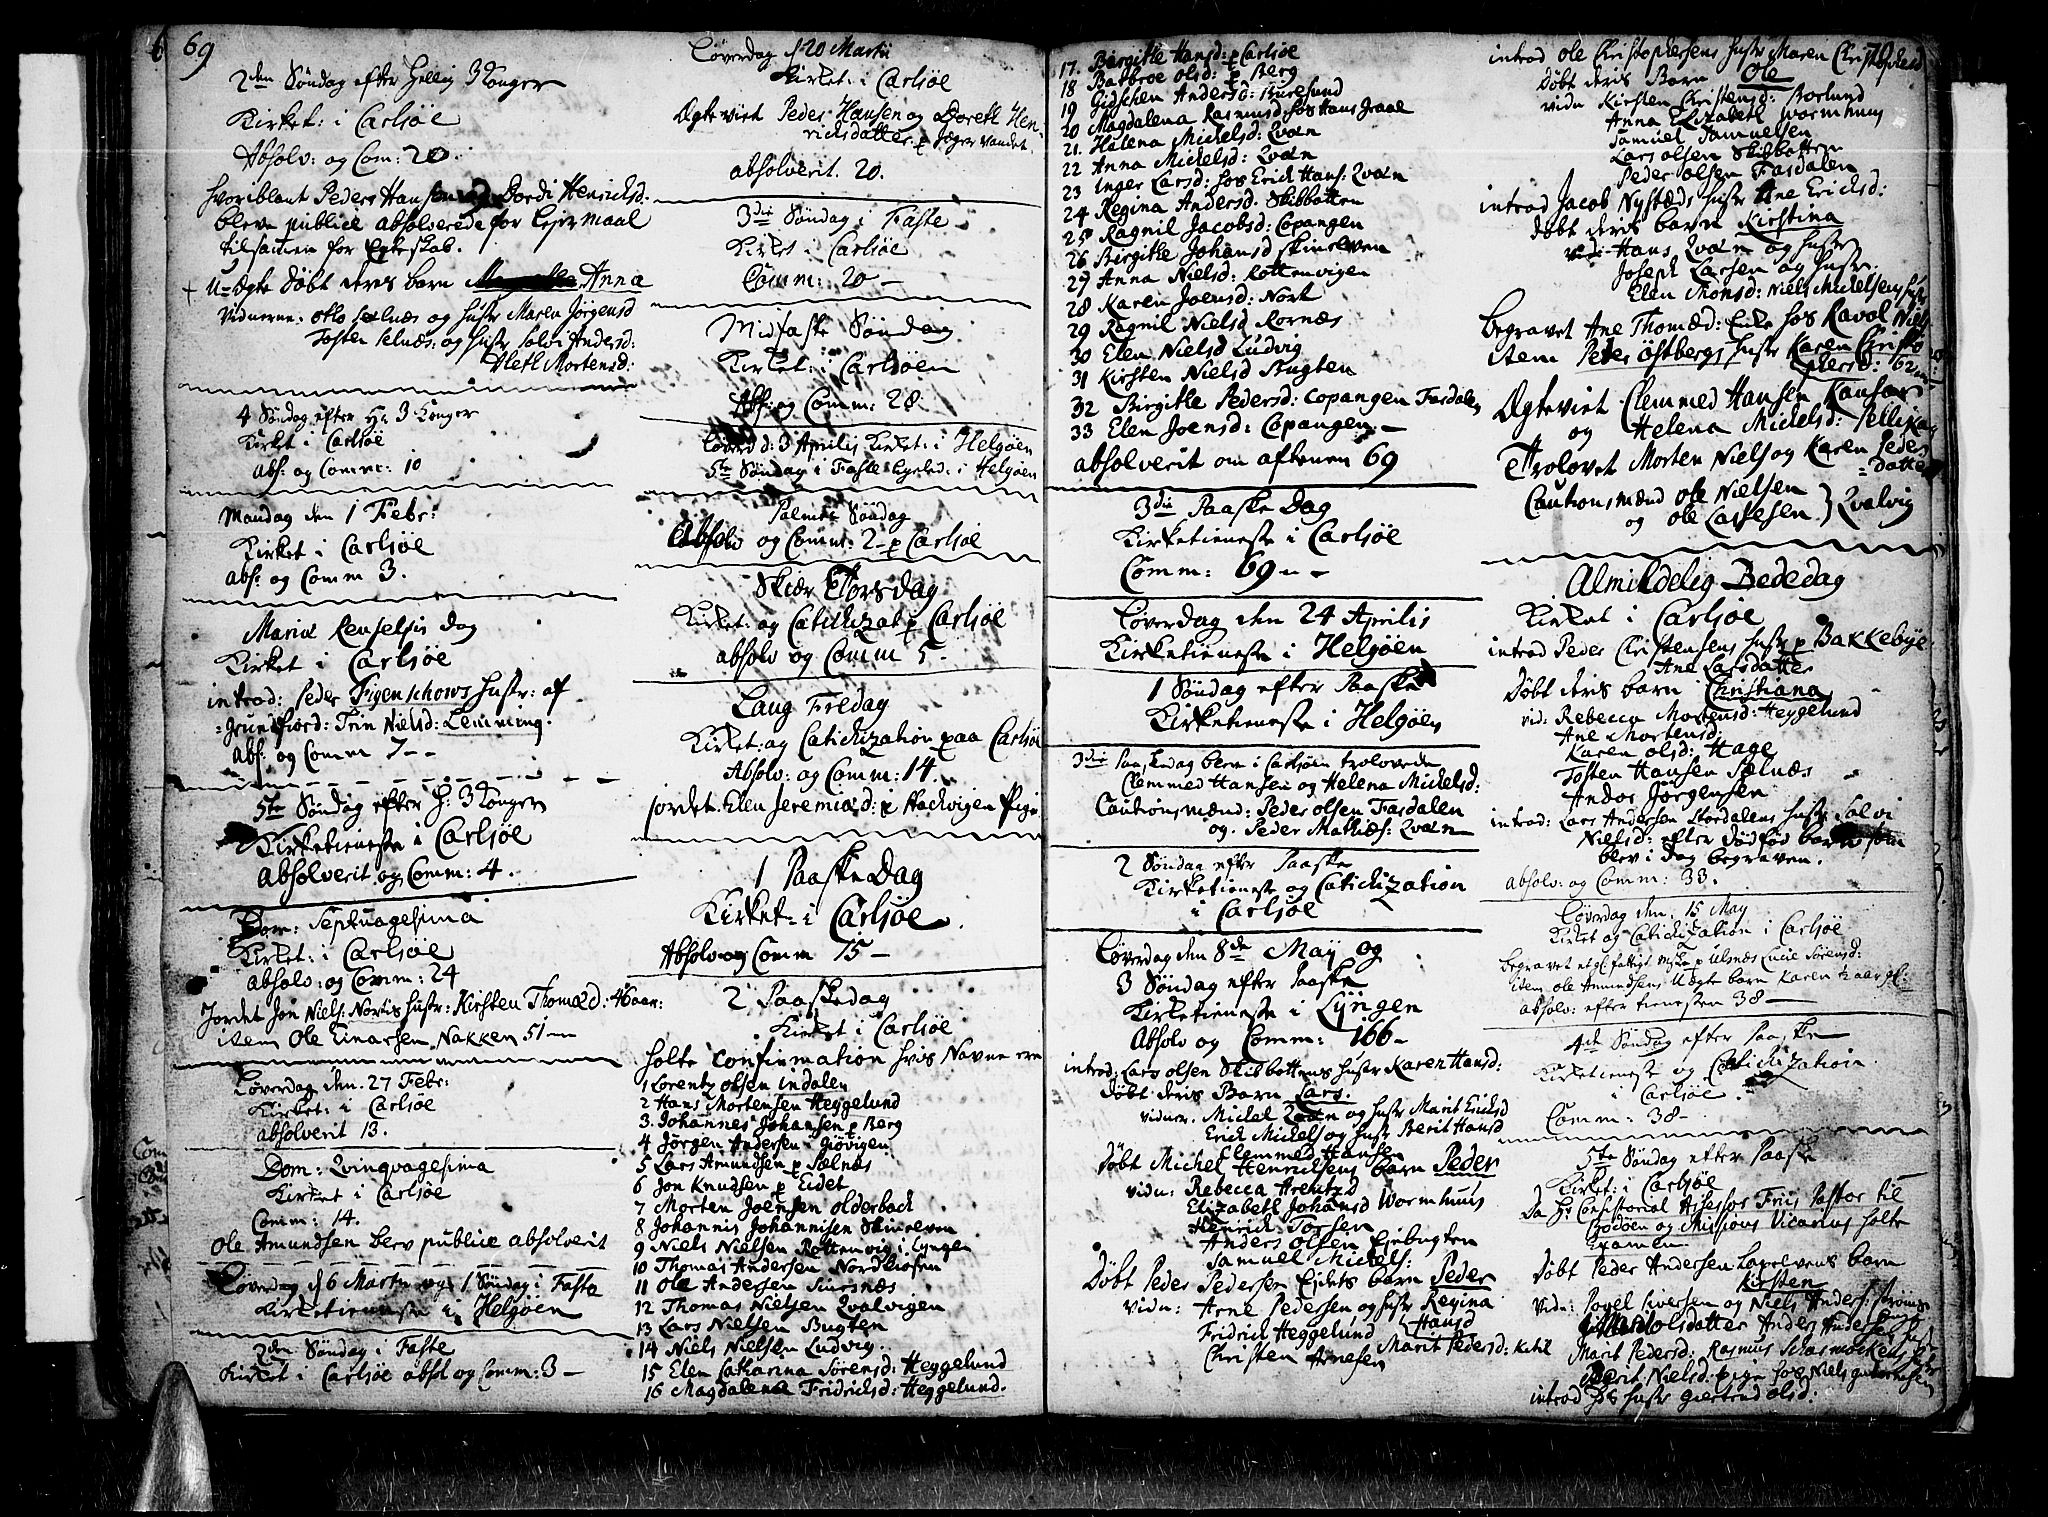 69
2den Søndag efter Hellig 3 Konger
Kirket: i Carlsøe
Absolv: og Com: 20.
hvoriblant Peder Hansen og Dordi Henricksd.
bleve publice absolverede for Lejermaal
tilsamen for Ecteskab.
U-Ægte Døbt deris barn Anna
Vidnerne: Otto Selnæs og hustr Maren Jørgensd
Tosten Selnæs og hustr Solvi Andersd:
Aleth Mortensd:
4 Søndag efter H: 3 Konger
Kirket i Carlsøe
Abs: og Comm: 10
Mandag den 1 Febr:
Kirket i Carlsøe
Abs: og Comm 3.
Mariæ Renselsis dag
Kirket i Carlsøe
introd: Peder Figenschows hustr: af
Grundfiord: Trin Nielsd: Lemming.
Abs: og Comm 7--
5te Søndag efter H: 3 Konger
Kirketieneste i Carlsøe
Absolverit og Comm: 4.
Dom: Septuagesima
Kirket: i Carlsøe
Absolv: og Comm: 24
Jordet Jon Niels: Nortis hustr: Kirsten Thomæd: 46 aar:
item Ole Einarsen Nakken 51
Løverdag den 27 Febr:
Kirket: i Carlsøe
absolverit 13.
Dom: Qvinqvagesima
Kirket i Carlsøe
Comm: 14.
Ole Amundsen blev publice absolverit
Løverdag d 6 Martii og 1 Søndag i Faste
Kirketieneste i Helgøen
2den Søndag i Faste
Kirket i Carlsøe absol og Comm: 3 -
Løverdag d 20 Martii
Kirket: i Carlsøe
Ægteviet Peder Hansen og Doreth Hen-
ricksdatter p Jægervandet.
absolverit. 20.
3die Søndag i Faste
Kirket i Carlsøe
Comm: 20 -
Midfaste Søndag
Kirket: i Carlsøen
Abs: og Comm: 28.
Løverd: d: 3 Aprilis Kirket: i Helgøen
5te Søndag i Faste i Helgøen
Palme Søndag
Absolv og Comm: 2 - p Carlsøe
Skiær Torsdag
Kirket: og Catichizat p Carlsøe
absolv og Comm 5.
Lang Fredag
Kirket: og Catichization paa Carlsøe
Absolv: og Comm: 14.
jordet: Elen Jeremiæd: p Hackvigen Pige
1 Paaske Dag
Kirket: i Carlsøe
Absolv og Comm 15 -
2 Paaskedag
Kirket i Carlsøe
holte Confirmation hvis Navne ere
1 Lorentz Olsen Indalen
2 Hans Mortensen Heggelund
3. Johannes Johansen p Berg
4 Jørgen Andersen Giøvigen
5 Lars Amundsen p Sælnæs
6 Jon Knudsen p Eidet
7 Morten Joensen Olderback
8 Johannis Johannisen Skinelven
9 Niels Nielsen Rottenvig i Lyngen
10 Thomas Andersen Nordkiosen
11 Ole Andersen Finsnæs
12 Thomas Nielsen Qvalvigen
13 Lars Nielsen Bugten
14 Niels Nielsen Ludvig.
15 Elen Catharina Sørensd: Heggelund
16 Magdalena Fridricksd: Heggelund.
17. Birgitte Hansd: p Carlsøe
18 Barbroe Olsd: p Berg
19 Gidschen Andersd: Buresund
20 Magdalena Rasmusd hos Hans Graal
21. Helena Mickelsd: Qvæn
22 Anna Mickelsd: Qvæn
23 Inger Larsd: hos Erick Hans: Qvæn
24 Regina Andersd: Skibbotten
25 Ragnil Jacobsd: Copangen
26 Birgitte Johansd Skinelven
27 Anna Nielsd: Rottenvigen
28 Karen Joensd: Nort
29 Ragnil Nielsd Kornæs
30 Elen Nielsd Ludvig
31 Kirsten Nielsd Bugten
32 Birgitte Pedersd: Copangen Fasdalen
33 Elen Joensd: Copangen -
absolverit om aftenen 69
3die Paaske Dag
Kirketieneste i Carlsøe
Comm: 69 -
Løverdag den 24 Aprilis
Kirketieneste i Helgøen
1 Søndag efter Paaske
Kirketieneste i Helgøen
3die Paaskedag blev i Carlsøen trolovede
Clemmed Hansen og Helena Mickelsd:
Cautionsmænd: Peder Olsen Fasdalen
og Peder Mathiæs: Qvæn
2 Søndag efter Paaske
Kirketieneste og Catichization
i Carlsøe
Løverdag den 8de May og
3 Søndag efter Paaske
Kirketieneste i Lyngen
Absolv og Comm: 166 -
introd: Lars Olsen Skibbottens hustr Karen Hansd:
Døbt deris Barn Lars.
vidner. Michel Qvæn og hustr Marit Ericksd
Erick Mickels og hustr Berit Hansd
Clemmed Hansen
Døbt Michel Henricksens barn Peder
vidn: Rebecca Arentzd
Elizabeth Johansd Wormhuus
Henrick Torsen
Anders Olsen Ejebugten
Samuel Mickels:
Døbt Peder Pedersen Ejdets barn Peder
vidn: Arne Pedersen og hustr Regina
Hansd
Fridrick Heggelund
Christen Arnesen Marit Pedersd: Ketil
70
introd Ole Christophersens hustr Maren Christophersd
Døbt deris Barn Ole
vidn Kirsten Christensd: Borlund
Anna Elizabeth Wormhuus
Samuel Samuelsen
Lars Olsen Skibbotten
Peder Olsen Fasdalen
introd Jacob Nystæds hustr Ane Ericksd:
døbt deris barn Kirstina
vid: Hans Qvæn og hustr
Joseph Larsen og hustr
Elen Monsd: Niels Mickelsens hustr
Begravet Ane Thomæd: Enke hos Ravol Niels
item Peder Østbergs hustr Karen Christo
phersd: 62
Ægteviet Clemmed Hansen
og Helena Mickelsd:
Trolovet Morten Niels og Karen Peders
datter
Cautionsmænd Ole Nielsen
og Ole Lassesen } Qvalvig
Almindelig Bededag
Kirket i Carlsøe
introd Peder Christensens hustr p Bakkebye
Ane Larsdatter
Døbt deris barn Christiana
vid: Rebecca Mortensd: Heggelund
Ane Mortensd:
Karen Olsd: Hage
Tosten Hansen Sælnæs
Andor Jørgensen
introd: Lars Andersen Stordalens hustr Solvi
Nielsd: efter dødfød barn som
blev i dag begraven.
absolv: og Comm: 33.
Løverdag den 15 May
Kirket og Catichization i Carlsøe
begravet et gl fattigt p Ulsnæs Lucie Sørensd:
item Ole Amundsens Uægte barn Karen 1/2 aar gl:
absolv: efter tienesten 38 -
4de Søndag efter Paaske
Kirketieneste og Catichization
i Carlsøe.
Comm: 38 -
5te Søndag efter Paaske
Kirket: i Carlsøe
Da Hr Consistorial Assessor Friis Pastor til
Bodøen og Missions Vicarius holte
Examen
Døbt Peder Andersen Lapelvens barn
Kirsten
vidn: Povel Iversen og Niels Anders: Strøms
Olsdatter Anders Andersens hustr
Marit Pedersd: Rasmus
Berit Nielsd: pige hos Niels
introd hs hustr Giertrud Olsd: